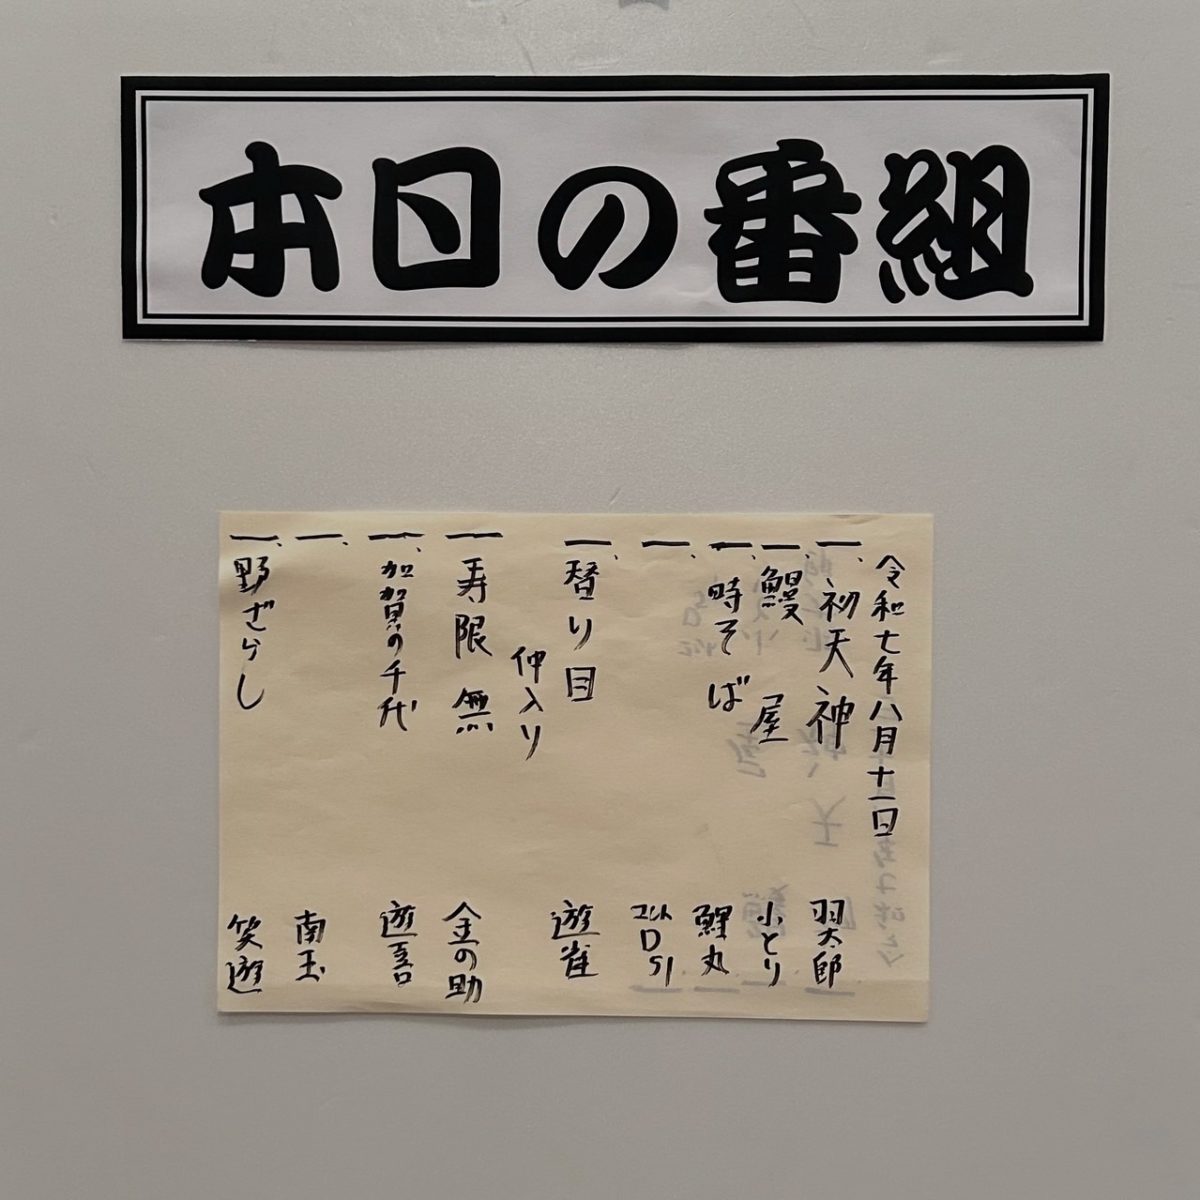 本日の番組
令和七年八月十一日
一、初天神 翔太郎
一、鰻屋 小とり
一、時そば 鯉丸
一、 コント D51
一、替り目 遊雀
仲入り
一、寿限無 金の助
一、加賀の千代 遊喜
一、 南玉
一、野ざらし 笑遊